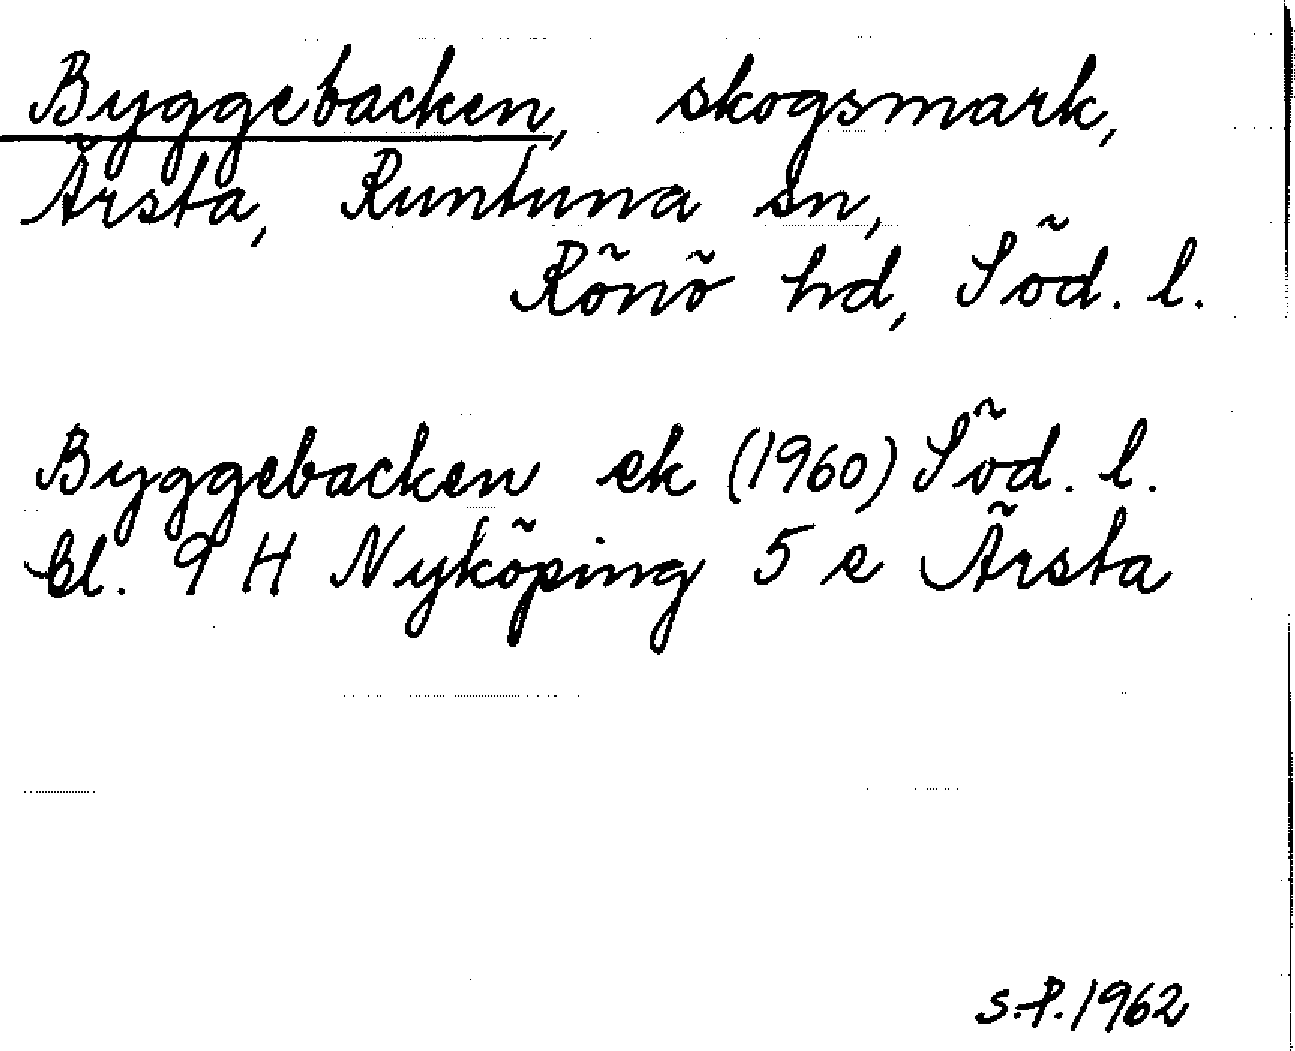 Byggebacken, skogsmark,
Ärsta, Runtuna sn,
Rönö hd, Söd. l.
Byggebacken ek (1960) Söd. l.
bl. 9 H Nyköping 5 e Ärsta
S.P. 1962